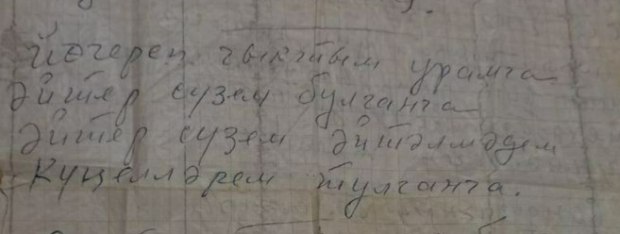 Йөгереп чыктым урамга
Әйтер сүзем булганга
Әйтер сүзем әйтәлмәдем
Күңелләрем тулганга.